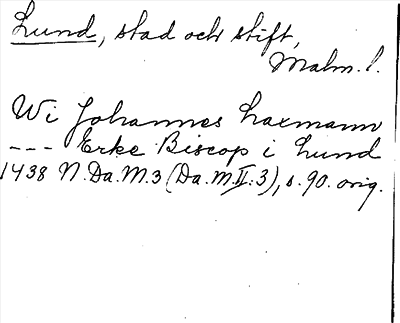 Lund, stad och stift,
Malm. l.
Wi Johannes Laxmann
--- Erke Biscop i Lund
1438 N.Da.M.3 (Da.M.II:3), s.90. orig.